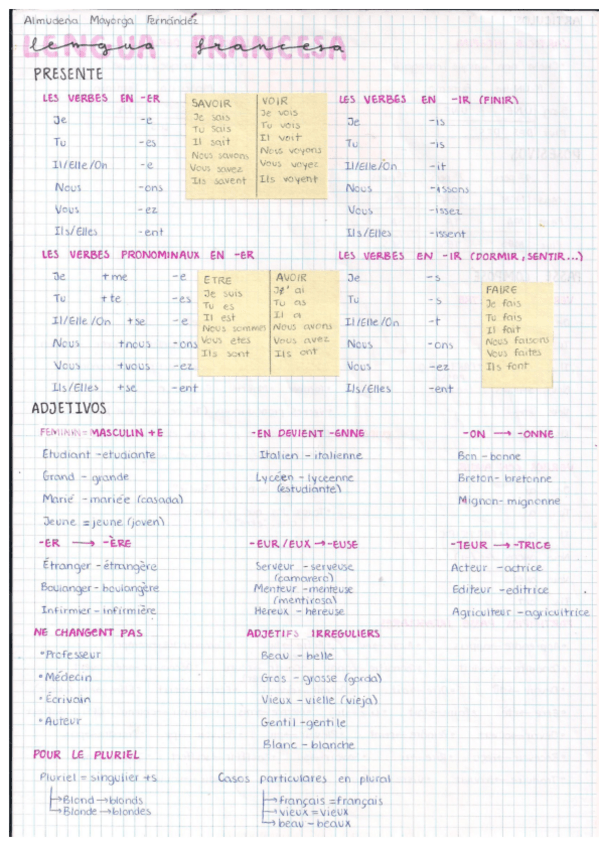 Almudena Mayorga Fernández
LENGUA FRANCESA
PRESENTE
LES VERBES EN -ER
Je -e
Tu -es
Il/Elle/On -e
Nous -ons
Vous -ez
Ils/Elles -ent
SAVOIR
Je sais
Tu sais
Il sait
Nous savons
Vous savez
Ils savent
VOIR
Je vois
Tu vois
Il voit
Nous voyons
Vous voyez
Ils voyent
LES VERBES EN -IR (FINIR)
Je -is
Tu -is
Il/Elle/On -it
Nous -issons
Vous -issez
Ils/Elles -issent
LES VERBES PRONOMINAUX EN -ER
Je +me -e
Tu +te -es
Il/Elle/On +se -e
Nous +nous -ons
Vous +vous -ez
Ils/Elles +se -ent
ETRE
Je suis
Tu es
Il est
Nous sommes
Vous etes
Ils sont
AVOIR
J' ai
Tu as
Il a
Nous avons
Vous avez
Ils ont
LES VERBES EN -IR (DORMIR, SENTIR...)
Je -s
Tu -s
Il/Elle/On -t
Nous -ons
Vous -ez
Ils/Elles -ent
FAIRE
Je fais
Tu fais
Il fait
Nous faisons
Vous faites
Ils font
ADJETIVOS
FEMININ = MASCULIN +E
Etudiant -etudiante
Grand - grande
Marié -mariée (casada)
Jeune = jeune (joven)
-EN DEVIENT -ENNE
Italien -italienne
Lycéen -lyceenne
(estudiante)
-ON → -ONNE
Bon - bonne
Breton- bretonne
Mignon- mignonne
-ER → -ÈRE
Étranger -étrangère
Boulanger - boulangère
Infirmier - infirmière
-EUR /EUX → -EUSE
Serveur - serveuse
(camarero)
Menteur -menteuse
(mentirosa)
Hereux - hereuse
-TEUR → -TRICE
Acteur -actrice
Editeur - editrice
Agriculteur -agricultrice
NE CHANGENT PAS
• Professeur
• Médecin
• Écrivain
• Auteur
ADJETIFS IRREGULIERS
Beau - belle
Gros - grosse (gorda)
Vieux - vielle (vieja)
Gentil -gentile
Blanc - blanche
POUR LE PLURIEL
Pluriel = singulier +s
→Blond → blonds
→Blonde → blondes
Casos particulares en plural
→français = français
→vieux = vieux
→beau - beaux